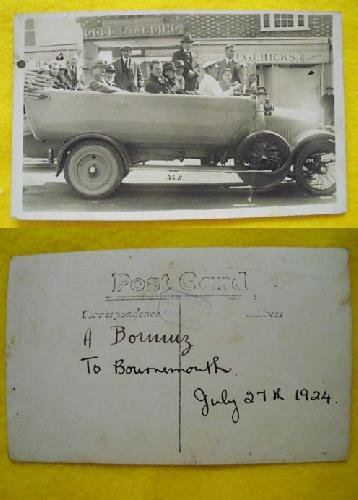 & J. HICKS.
365.
Post Card
Correspondence
Address
A
To Bournemouth.
July 27th 1924.